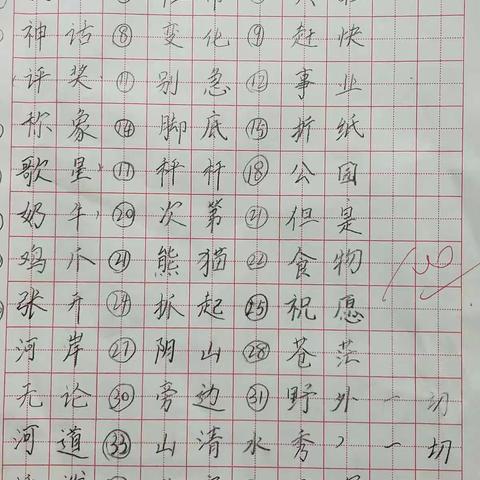 神话 ⑧ 变化 ⑨ 赶快
评奖 ⑪ 别急 ⑫ 事业
称象 ⑭ 脚底 ⑮ 折纸
歌星 ⑰ 秤杆 ⑱ 公园
奶牛 ⑳ 次第 ㉑ 但是
鸡爪 ㉑ 熊猫 ㉒ 食物
张开 ㉔ 抓起 ㉕ 祝愿
河岸 ㉗ 阴山 ㉘ 苍茫
无论 ㉚ 旁边 ㉛ 野外 一切
河道 ㉝ 山清水秀 一切